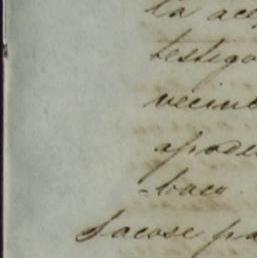 la ace
testigo
vecino
apode
-baco.
Sacose pa